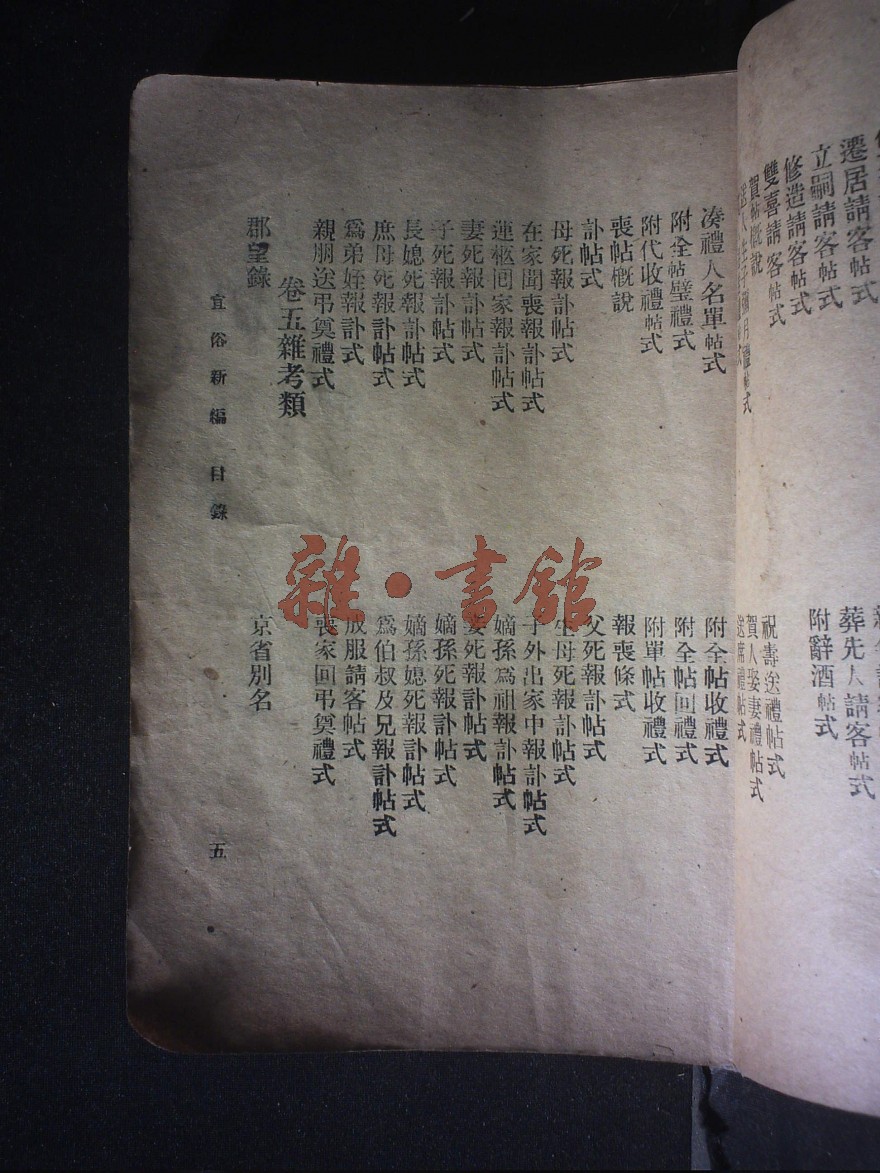 遷居請客帖式
立嗣請客帖式
修造請客帖式
雙喜請客帖式
賀帖概說
葬先人請客帖式
附辭酒帖式
祝壽送禮帖式
賀人娶妻禮帖式
送席禮帖式
湊禮人名單帖式
附全帖璧禮式
附代收禮帖式
喪帖概說
訃帖式
母死報訃帖式
在家聞喪報訃帖式
運柩囘家報訃帖式
妻死報訃帖式
子死報訃帖式
長媳死報訃帖式
庶母死報訃帖式
爲弟姪報訃式
親朋送弔奠禮式
附全帖收禮式
附全帖回禮式
附單帖收禮式
報喪條式
父死報訃帖式
生母死報訃帖式
子外出家中報訃帖式
嫡孫爲祖報訃帖式
妾死報訃帖式
嫡孫死報訃帖式
嫡孫媳死報訃帖式
爲伯叔及兄報訃帖式
成服請客帖式
喪家回弔奠禮式
卷五雜考類
郡望錄
京省別名
宜俗新編 目錄 五
雜·書館